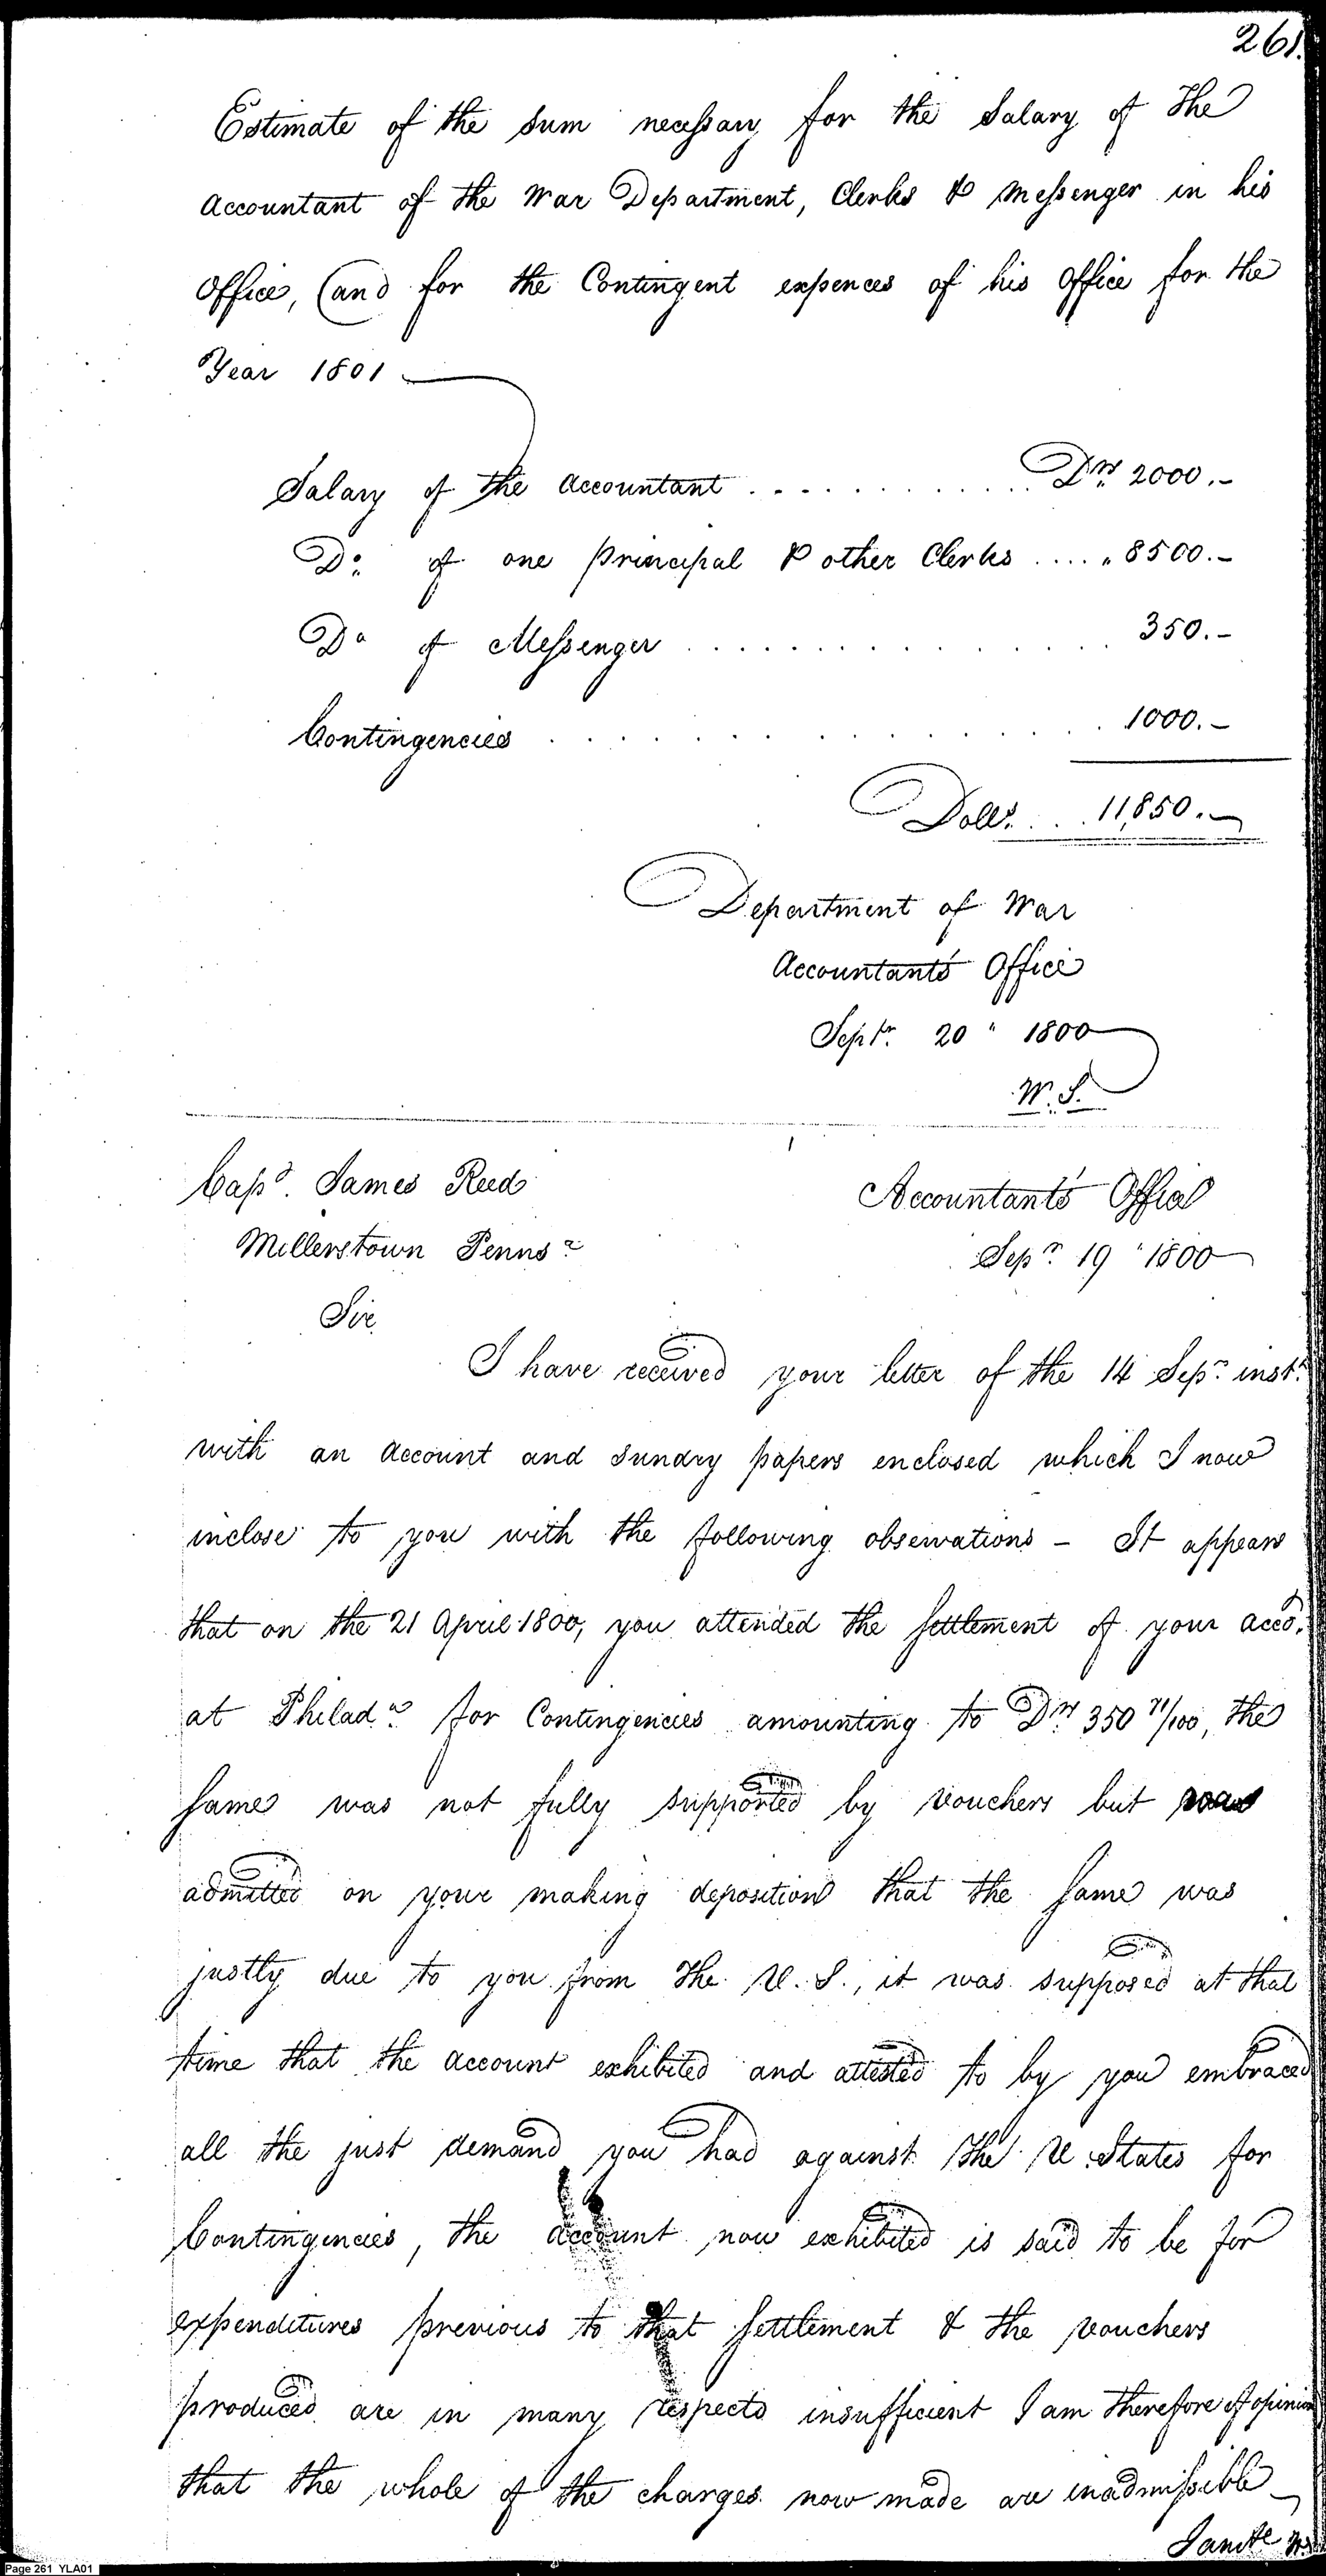 261.
Estimate of the Sum necessary for the Salary of the
Accountant of the War Department, Clerks & Messenger in his
Office, (and for the Contingent expences of his Office for the
Year 1801
Salary of the Accountant . . . . . . . . . . . . Drs. 2000.-
Do. of one principal & other Clerks . . . . " 8500.-
Do of Messenger . . . . . . . . . . . . . . . 350.-
Contingencies . . . . . . . . . . . . . . . . . 1000.-
Dolls. . . 11,850.-
Department of War
Accountant's Office
Septr. 20 " 1800
W. S.
Capt. James Reed
Accountant's Office
Millerstown Penns a
Sepr. 19 " 1800
Sir
I have received your letter of the 14 Sepr. inst.
with an account and sundry papers enclosed which I now
inclose to you with the following observations - It appears
that on the 21 April 1800, you attended the settlement of your acco.
at Philada. for Contingencies amounting to Drs. 350 71/100, the
same was not fully supported by vouchers but was
admitted on your making deposition that the same was
justly due to you from the U. S., it was supposed at that
time that the account exhibited and attested to by you embraced
all the just demand you had against the U. States for
Contingencies, the account now exhibited is said to be for
expenditures previous to that settlement & the vouchers
produced are in many respects insufficient I am therefore of opinion
that the whole of the charges now made are inadmissible
I am &c
Page 261 YLA01